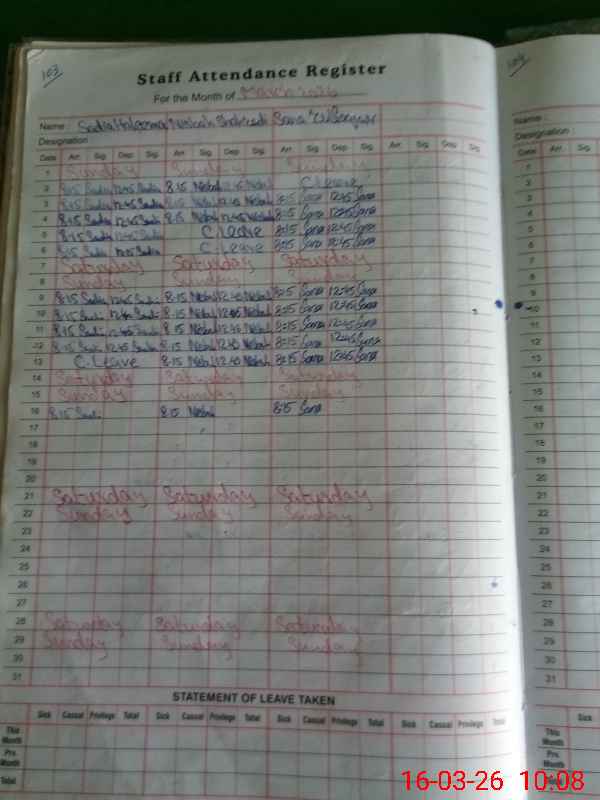 103
Staff Attendance Register
For the Month of March 2026
Name : Sadia Haleema Nabeela Shahzadi Sana
Designation
Date Arr. Sig. Dep. Sig. Arr. Sig. Dep. Sig. Arr. Sig. Dep. Sig. Arr. Sig. Dep. Sig.
1 Sunday Sunday Sunday
2 8:15 Sadia 12:45 Sadia 8:15 12:45 C. Leave
3 8:15 Sadia 12:45 Sadia 8:15 12:45 8:15 Sana 12:45 Sana
4 8:15 Sadia 12:45 Sadia 8:15 12:45 8:15 Sana 12:45 Sana
5 8:15 Sadia 12:45 Sadia C. Leave 8:15 Sana 12:45 Sana
6 8:15 Sadia 12:45 Sadia C. Leave 8:15 Sana 12:45 Sana
7 Saturday Saturday Saturday
8 Sunday Sunday Sunday
9 8:15 Sadia 12:45 Sadi 8:15 12:40 8:15 Sana 12:45 Sana
10 8:15 Sadi 12:40 Sadi 8:15 12:40 8:15 Sana 12:45 Sana
11 8:15 Sadi 12:45 Sadi 8:15 12:40 8:15 Sana 12:45 Sana
12 8:15 Sadi 12:45 Sadi 8:15 12:40 8:15 Sana 12:45 Sana
13 C. Leave 8:15 12:40 8:15 Sana 12:45 Sana
14 Saturday Saturday Saturday
15 Sunday Sunday Sunday
16 8:15 Sadi 8:15 8:15 Sana
17
18
19
20
21 Saturday Saturday Saturday
22 Sunday Sunday Sunday
23
24
25
26
27
28 Saturday Saturday Saturday
29 Sunday Sunday Sunday
30
31
STATEMENT OF LEAVE TAKEN
Sick Casual Privilege Total Sick Casual Privilege Total Sick Casual Privilege Total Sick Casual Privilege Total
This Month
Prv. Month
Total
104
Name :
Designation
Date Arr. Sig. Dep.
1
2
3
4
5
6
7
8
9
10
11
12
13
14
15
16
17
18
19
20
21
22
23
24
25
26
27
28
29
30
31
Sick
This Month
Prv. Month
Total
16-03-26 10:08